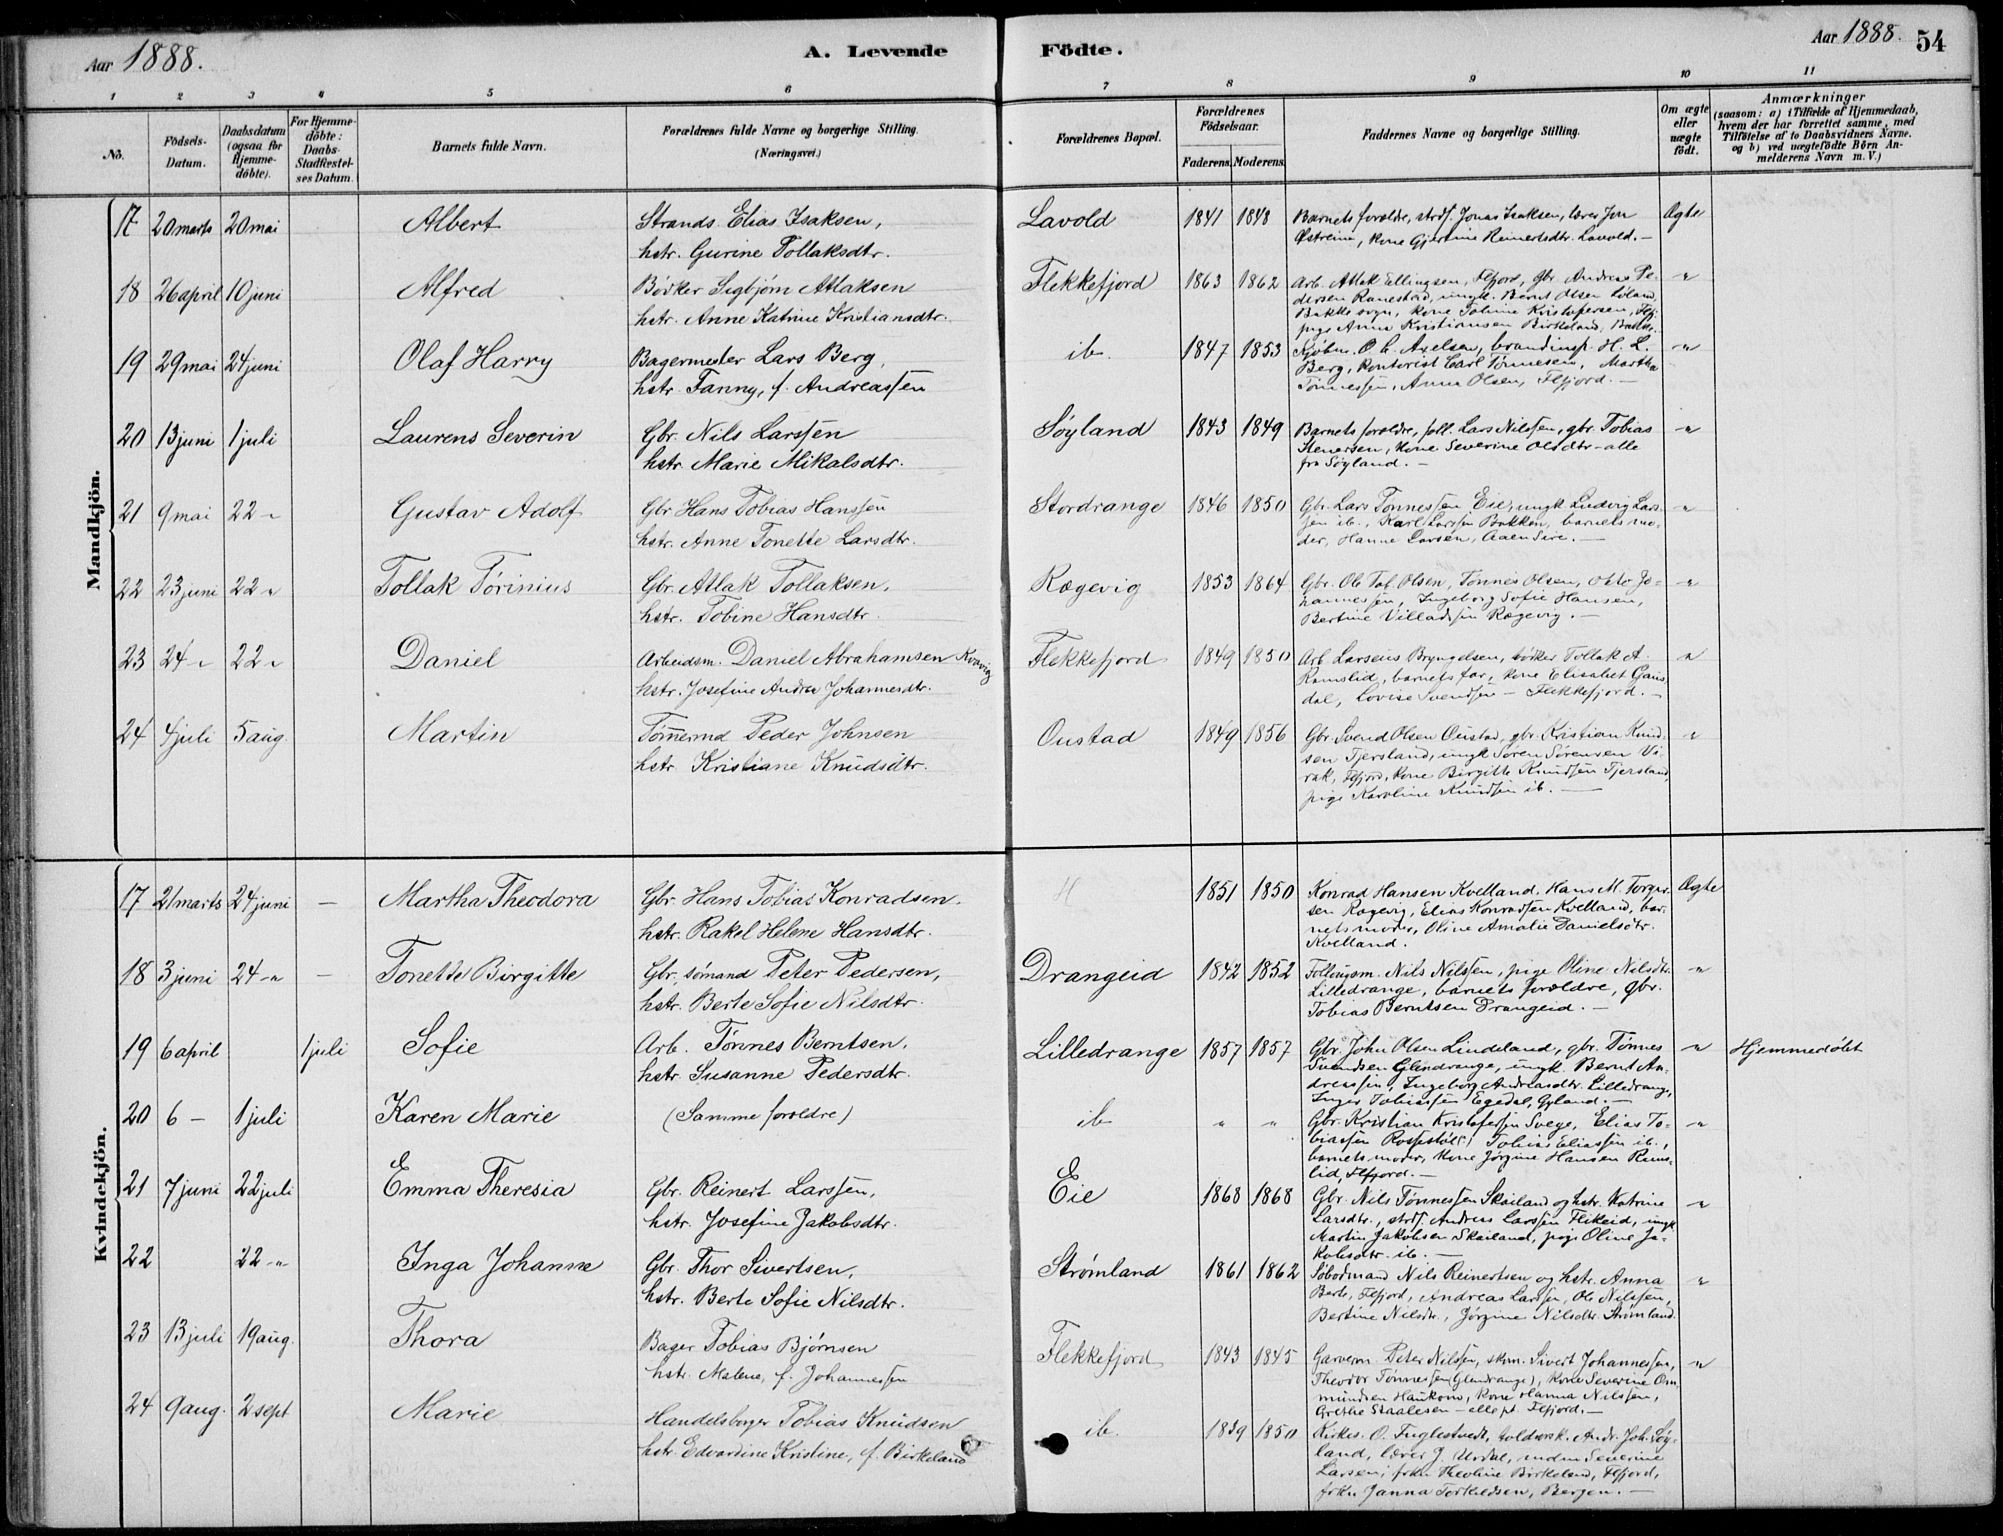 Aar 1888.
A. Levende
Födte.
Aar 1888.
54
1 2 3 4 5 6 7 8 9 10 11
No.
Födsels-
Datum.
Daabsdatum
(ogsaa for
Hjemme-
döbte).
For Hjemme-
döbte:
Daabs-
Stadfæstel-
ses Datum.
Barnets fulde Navn.
Forældrenes fulde Navne og borgerlige Stilling.
(Næringsvei.)
Forældrenes Bopæl.
Forældrenes
Födselsaar.
Faderens. Moderens.
Faddernes Navne og borgerlige Stilling.
Om ægte
eller
uægte
födt.
Anmærkninger
(saasom: a) i Tilfælde af Hjemmedaab,
hvem der har forrettet samme, med
Tilföielse af to Daabsvidners Navne.
og b) ved uægtefödte Börn An-
melderens Navn m. V.)
Mandkjön.
17 20 marts 20 mai Albert Strands. Elias Isaksen,
hstr. Gurine Tollaksdtr.
Lavold 1841 1848 Barnets forældre, strds. Jonas Isaksen, lærer Jon
Østreim, kone Gjertine Reinertsdtr. Lavold. —
Ægte
18 26 april 10 juni Alfred Bødker Sigbjørn Atlaksen
hstr. Anne Katrine Kristiansdtr.
Flekkefjord 1863 1862 Arb. Atlak Ellingsen, Flfjord, gbr. Andreas Pe-
dersen Ranestad, ungk. Bernt Olsen Løland,
Bakke sogn, kone Tobine Kristofersen, Flfj.
pige Anna Kristiansen Birkeland, Bakke.
"
19 29 mai 24 juni Olaf Harry Bagermester Lars Berg,
hstr. Fanny, f. Andreassen
ib. 1847 1853 Kjøbm. O. C. Axelsen, brandinsp. H. L.
Berg, kontorist Carl Tønnesen, Martha
Tønnessen, Anna Olsen, Flfjord. —
"
20 13 juni 1 juli Laurens Severin Gbr. Nils Larssen
hstr. Marie Mikalsdtr.
Søyland 1843 1849 Barnets forældre, foll. Lars Nilssen, gbr. Tobias
Stenersen, kone Severine Olsdtr – alle
fra Søyland. —
"
21 9 mai 22 " Gustav Adolf Gbr. Hans Tobias Hanssen
hstr. Anne Tonette Larsdtr.
Stordrange 1846 1850 Gbr. Lars Tønnessen Eie, ungk Ludvig Lars-
sen ib., Karl Larssen Bakken, barnets mo-
der, Hanne Larsen, Aaen Sire. —
"
22 23 juni 22 " Tollak Tørinius Gbr. Atlak Tollaksen,
hstr. Tobine Hansdtr.
Rægevig 1853 1864 Gbr. Ole Tol. Olsen, Tønnes Olsen, Otto Jo-
hannessen, Ingeborg Sofie Hansen,
Bertine Villadsen Rægevig. —
"
23 24 " 22 " Daniel Arbeidsm. Daniel Abrahamsen Kvavig
hstr. Josefine Andrea Johannesdtr.
Flekkefjord 1849 1850 Arb Larseius Bryngelsen, bødker Tollak A.
Ramslid, barnets far, kone Elisabet Gaus-
dal, Lovise Svendsen – Flekkefjord. —
"
24 4 juli 5 aug. Martin Tømmermd Peder Johnsen
hstr. Kristiane Knudsdtr.
Oustad 1849 1856 Gbr. Svend Olsen Oustad, gbr. Kristian Knud-
sen Tjersland, ungk Søren Sørensen Vi-
rak, Flfjord, kone Birgitte Knudsen Tjersland
pige Karoline Knudsen ib. —
"
Kvindekjön.
17 21 marts 24 juni — Martha Theodora Gbr. Hans Tobias Konradsen.
hstr. Rakel Helene Hansdtr.
H 1851 1850 Konrad Hansen Kvelland. Hans M. Torger-
sen Rægevig, Elias Konradsen Kvelland, bar-
nets moder, Oline Amalie Danielsdtr.
Kvelland.
Ægte
18 3 juni 24 " — Tonette Birgitte Gbr., sømand Peter Pedersen,
hstr. Berte Sofie Nilsdtr.
Drangeid 1842 1852 Follugsm. Nils Nilssen, pige Oline Nilsdtr.
Lilledrange, barnets forældre, gbr.
Tobias Berntsen Drangeid. —
"
19 6 april 1 juli Sofie Arb. Tønnes Berntsen,
hstr. Susanne Pedersdtr.
Lilledrange 1857 1857 Gbr. John Olsen Lindeland, gbr. Tønnes
Svendsen Glendrange, ungk. Bernt An-
dreassen, Ingeborg Andreasdtr. Lilledrange,
Inger Tobiassen Egedal, Gyland. —
" Hjemmedøbt
20 6 — 1 juli Karen Marie (Samme forældre)
ib " " Gbr. Kristian Kristofersen Svege, Elias To-
biassen, Tobias Eliassen ib.,
barnets moder, kone Jørgine Hansen Rams-
lid, Flfjord. —
"
21 7 juni 22 juli Emma Theresia Gbr. Reinert Larssen,
hstr. Josefine Jakobsdtr.
Eie 1868 1868 Gbr. Nils Tønnessen Skailand og hstr. Katrine
Larsdtr., strds. Andreas Larssen Flikeid, ungk
Martin Jakobsen Skailand, pige Oline Ja-
kobsdtr. ib. —
"
22 22 " Inga Johanne Gbr. Thor Sivertsen,
hstr. Berte Sofie Nilsdtr.
Strømland 1861 1862 Søbodmand Nils Reinertsen og hstr. Anna
Berte, Flfjord, Andreas Larssen, Ole Nilssen,
Bertine Nilsdtr., Jørgine Nilsdtr. Strømland
"
23 13 juli 19 aug. Thora Bager Tobias Bjørnsen
hstr. Malene, f. Johannessen
Flekkefjord 1843 1845 Garverm. Peter Nilssen, skm. Sivert Johannessen,
Theodor Tønnessen (Glendrange), kone Severine Om-
mundsen Haukom, kone Hanna Nilssen,
Grethe Staalesen – alle pt. Flfjord. —
"
24 9 aug. 2 sept Marie Handelsborger Tobias Knudsen
hstr. Edvardine Kristine, f. Birkeland
ib. 1839 1850 Kirkes. O. Fuglestvedt, toldersk. Andr. Joh. Søy-
land, lærer J. Urdal, Severine
Larsen, frkn Theoline Birkeland, Flfjord,
frkn Janna Terkildsen, Bergen. —